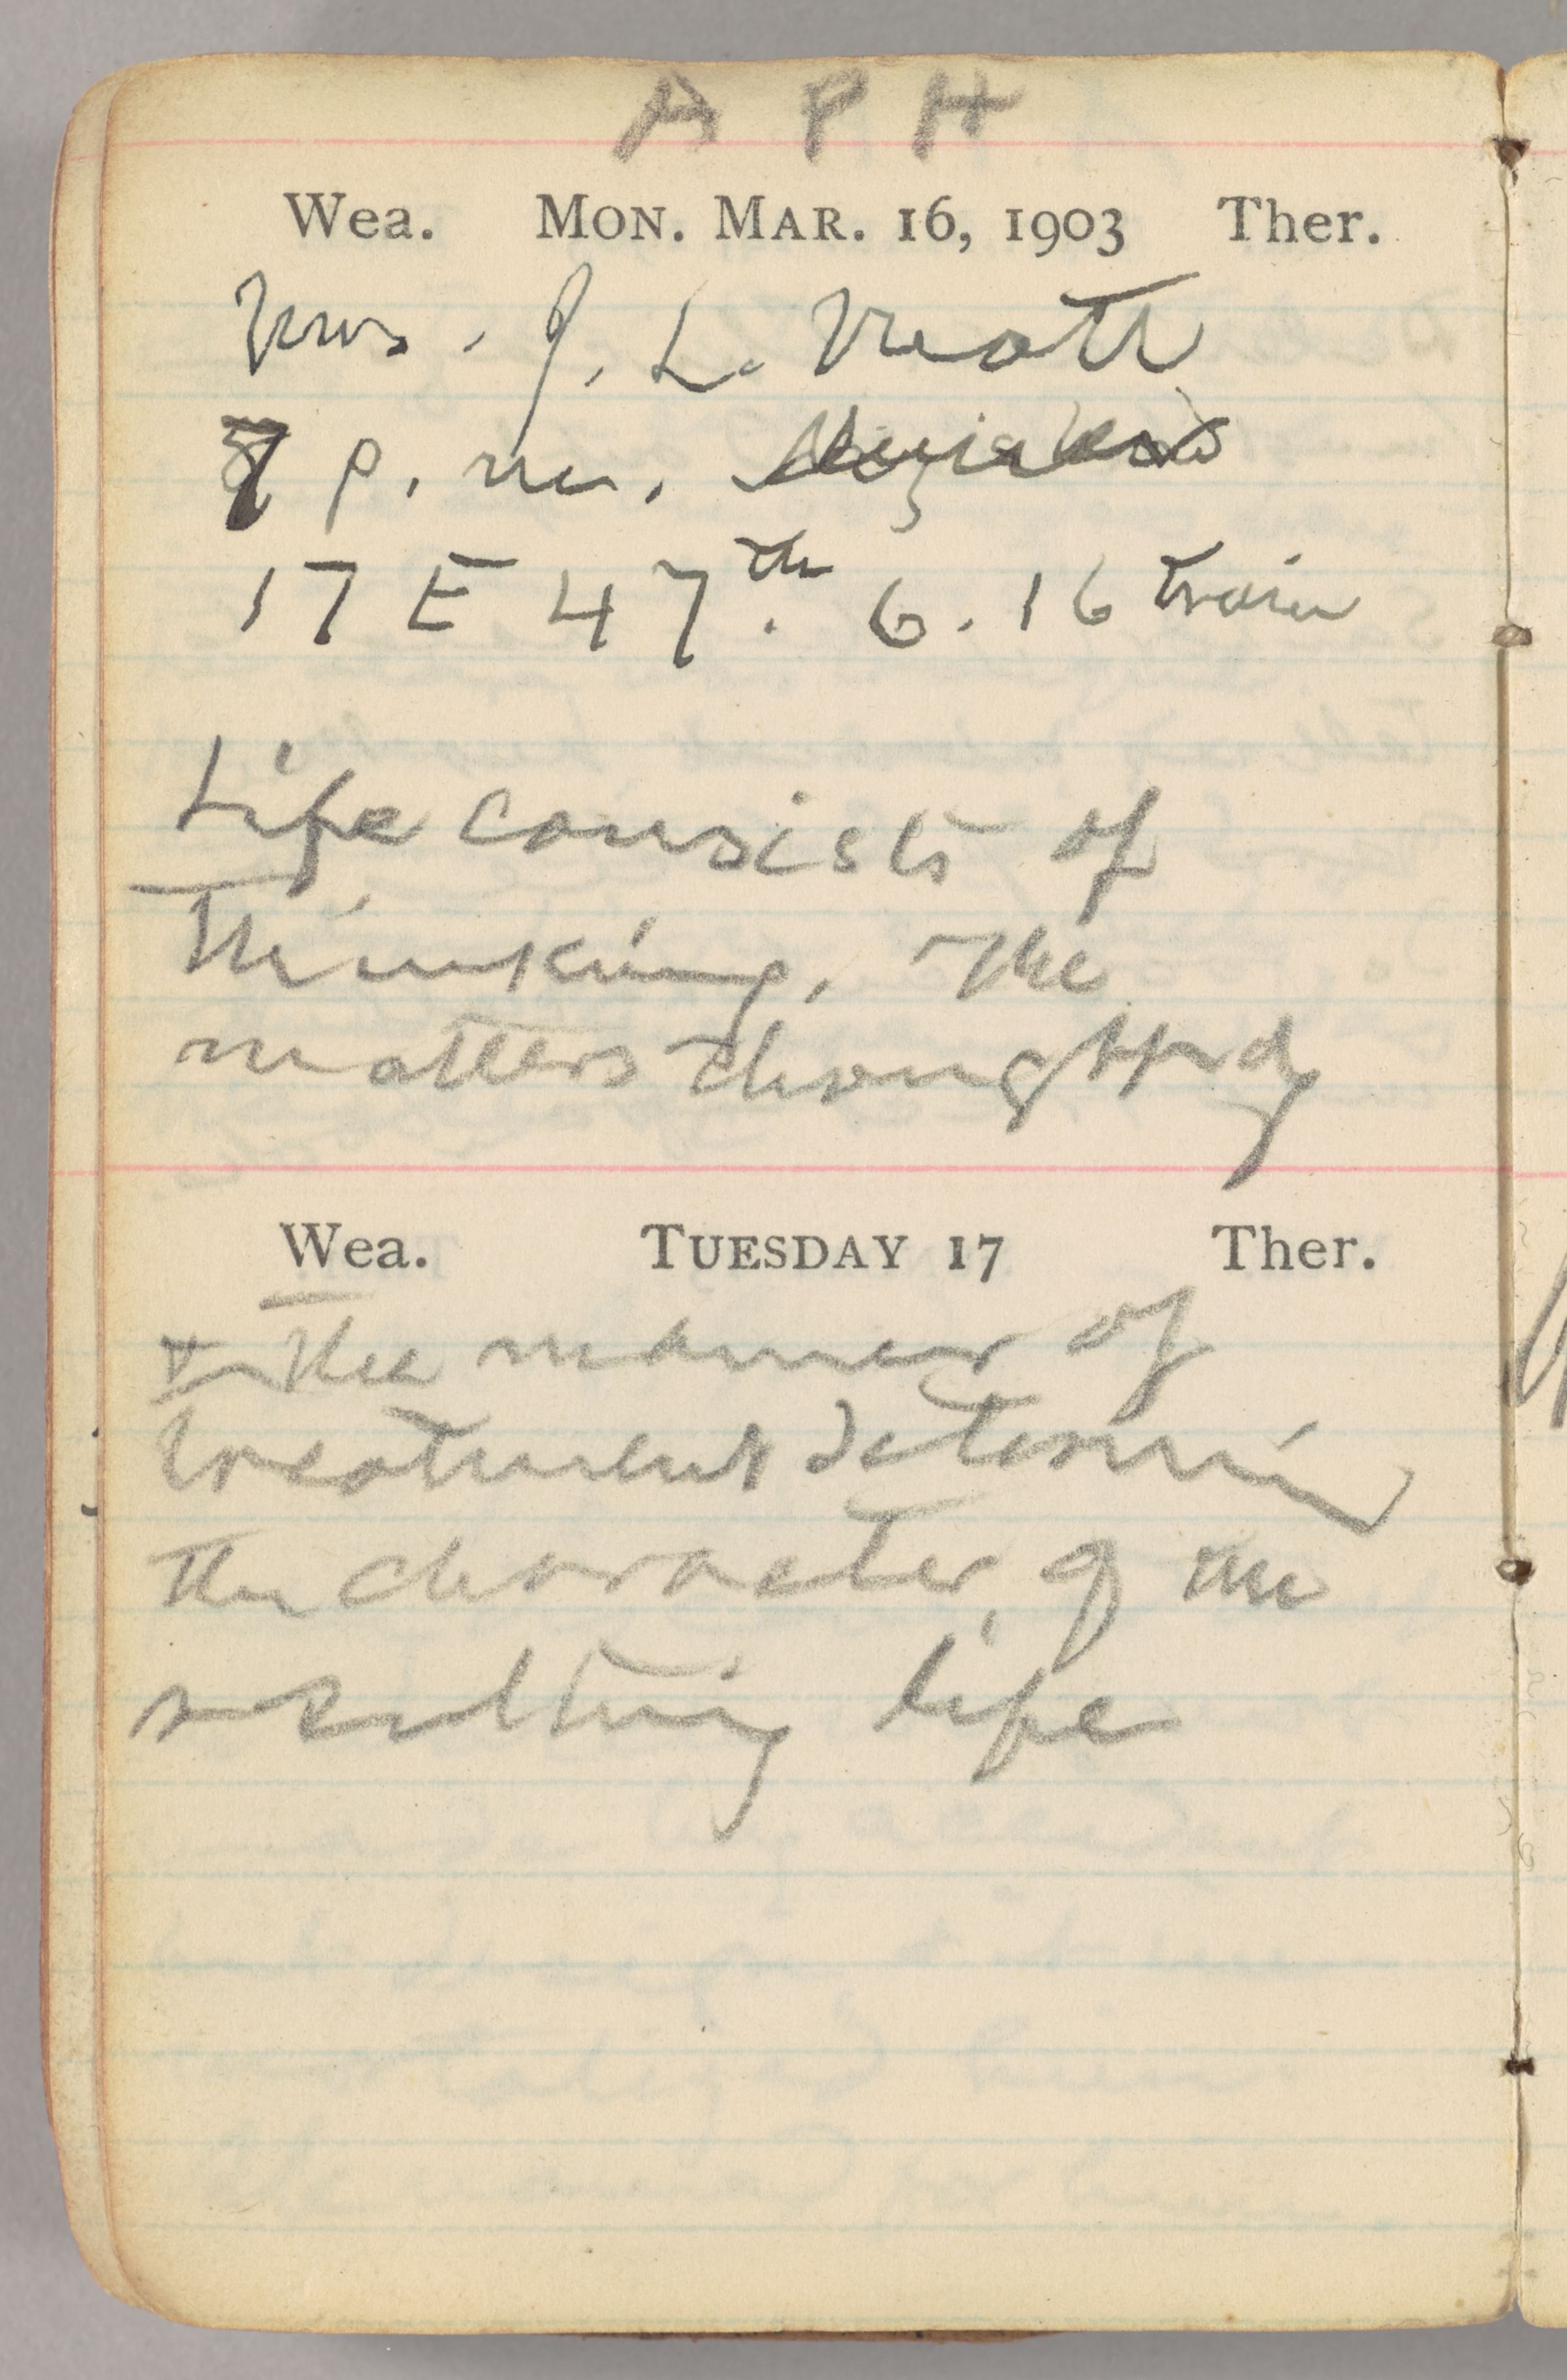 A P H
Wea. MON. MAR. 16, 1903 Ther.
Mrs. J. L. Mott
7 p. m.
17 E 47th. 6.16 train
Life consists of
Thinking. The
matters thought of
Wea. TUESDAY 17 Ther.
& the manner of
treatment determin
the character of the
resulting life